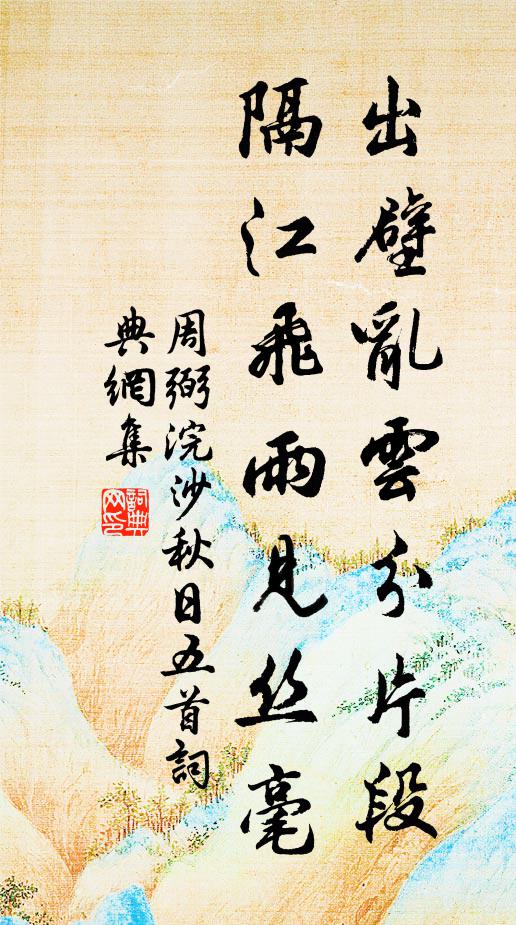 出壁亂雲分片段
隔江飛雨見丝毫
周弼浣沙秋日五首詞
典網集
詞典
网印